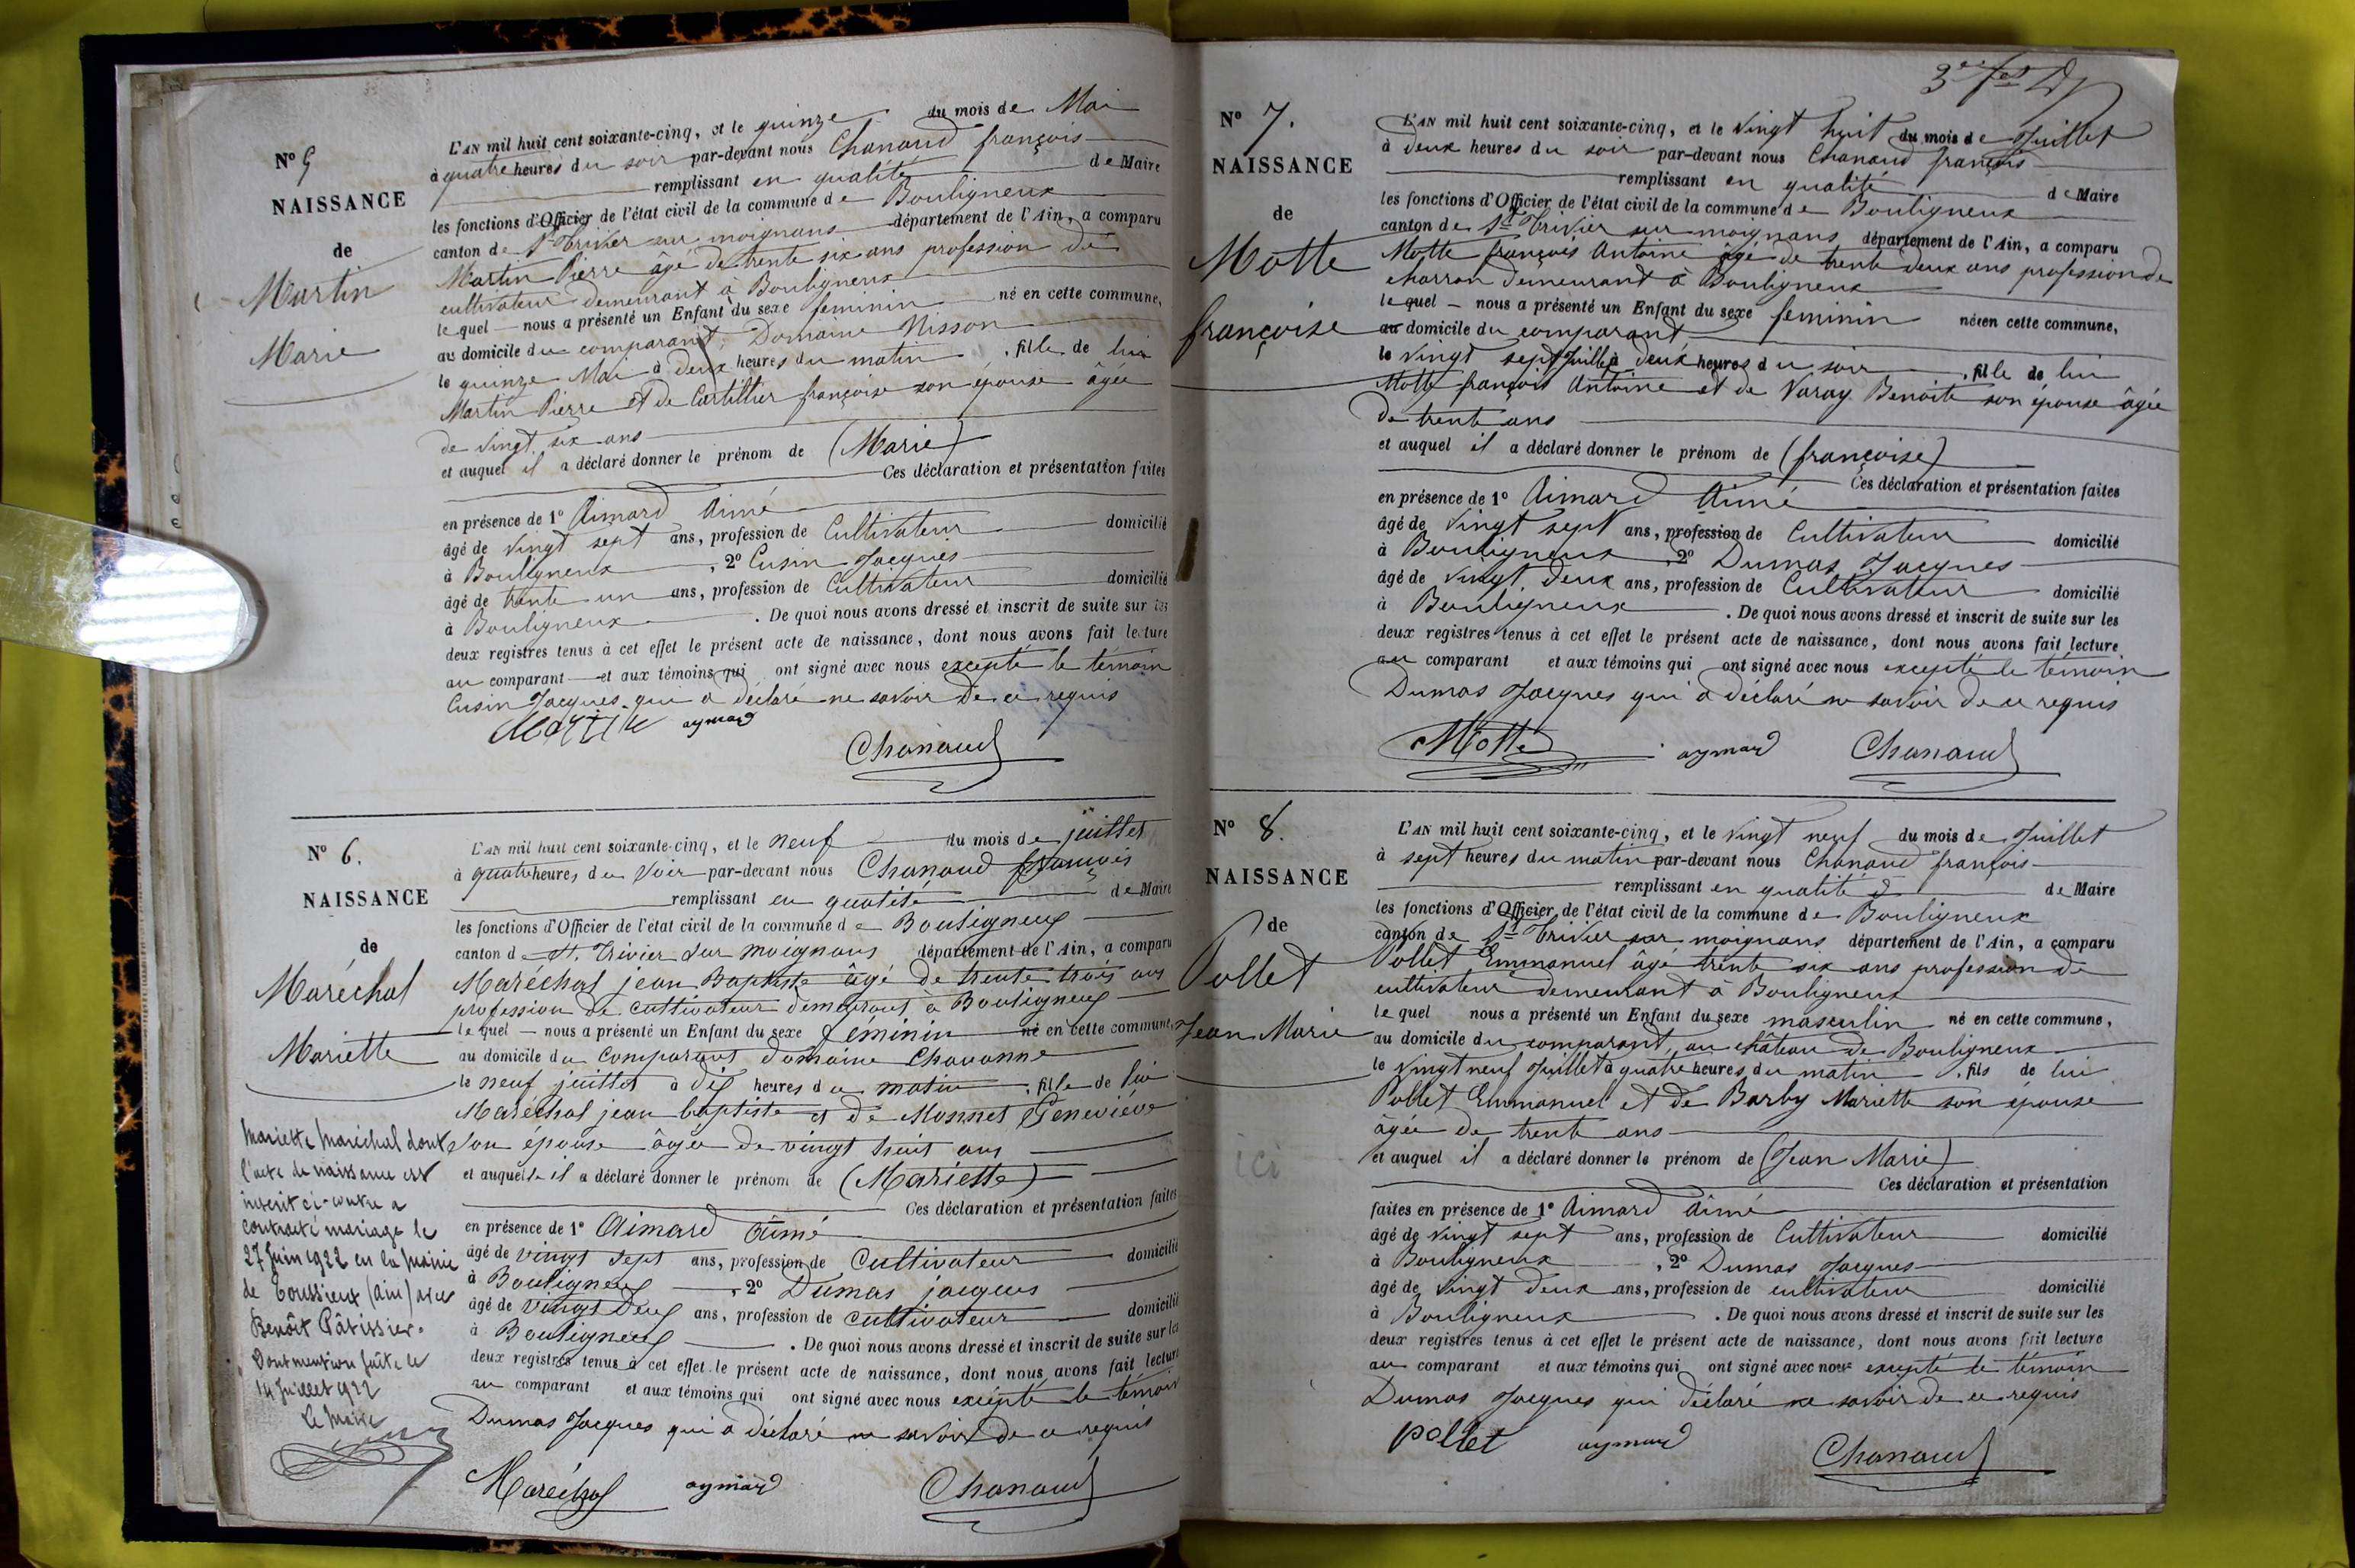 Nº 5
NAISSANCE
de
Martin
Marie
L'AN mil huit cent soixante-cinq, et le quinze du mois de Mai
à quatre heures du soir par-devant nous Chanaud françois
remplissant en qualité de Maire
les fonctions d'Officier de l'état civil de la commune de Bouligneux
canton de St Trivier sur moignans département de l'Ain, a comparu
Martin Pierre âgé de trente six ans profession de
cultivateur demeurant à Bouligneux
lequel nous a présenté un Enfant du sexe feminin né en cette commune,
au domicile du comparant, Domaine Nisson
le quinze Mai à deux heures du matin, fille de lui
Martin Pierre et de Cartillier françoise son épouse âgée
de vingt six ans
et auquel il a déclaré donner le prénom de (Marie)
Ces déclaration et présentation faites
en présence de 1º Aimard Aimé
âgé de vingt sept ans, profession de Cultivateur domicilié
à Bouligneux, 2º Cusin Jacques
âgé de trente un ans, profession de Cultivateur domicilié
à Bouligneux. De quoi nous avons dressé et inscrit de suite sur les
deux registres tenus à cet effet le présent acte de naissance, dont nous avons fait lecture
au comparant et aux témoins qui ont signé avec nous excepté le témoin
Cusin Jacques qui a déclaré ne savoir de ce requis
Martin aymard
Chanaud
Nº 6.
NAISSANCE
de
Maréchal
Mariette
L'AN mil huit cent soixante-cinq, et le neuf du mois de juillet
à quatre heures du soir par-devant nous Chanaud françois
remplissant en qualité de Maire
les fonctions d'Officier de l'état civil de la commune de Bouligneux
canton de St. Trivier sur moignans département de l'Ain, a comparu
Maréchal jean Baptiste âgé de trente trois ans
profession de cultivateur demeurant à Bouligneux
lequel nous a présenté un Enfant du sexe féminin né en cette commune,
au domicile du comparant domaine Chavanne
le neuf juillet à dix heures du matin, fille de lui
Maréchal jean baptiste et de Monnet Geneviève
son épouse âgée de vingt huit ans
et auquelle il a déclaré donner le prénom de (Mariette)
Ces déclaration et présentation faites
en présence de 1º Aimard Aimé
âgé de vingt sept ans, profession de Cultivateur domicilié
à Bouligneux, 2º Dumas jacques
âgé de vingt deux ans, profession de cultivateur domicilié
à Bouligneux. De quoi nous avons dressé et inscrit de suite sur les
deux registres tenus à cet effet le présent acte de naissance, dont nous avons fait lecture
au comparant et aux témoins qui ont signé avec nous excepté le témoin
Dumas Jacques qui a déclaré ne savoir de ce requis
Maréchal aymard Chanaud
Mariette Maréchal dont
l'acte de naissance est
inscrit ci-contre a
contracté mariage le
27 Juin 1922 en la Mairie
de Toussieux (Ain) avec
Benoît Pâtissier.
Dont mention faite le
14 Juillet 1922
Le Maire
Nº 7.
NAISSANCE
de
Motte
françoise
L'AN mil huit cent soixante-cinq, et le vingt huit du mois de Juillet
à deux heures du soir par-devant nous Chanaud françois
remplissant en qualité de Maire
les fonctions d'Officier de l'état civil de la commune de Bouligneux
canton de St Trivier sur moignans département de l'Ain, a comparu
Motte françois Antoine âgé de trente deux ans profession de
charron demeurant à Bouligneux
lequel nous a présenté un Enfant du sexe feminin né en cette commune,
au domicile du comparant
le vingt sept Juillet à deux heures du soir, fille de lui
Motte françois Antoine et de Varay Benoite son épouse âgée
de trente ans
et auquel il a déclaré donner le prénom de (françoise)
Ces déclaration et présentation faites
en présence de 1º Aimard Aimé
âgé de vingt sept ans, profession de Cultivateur domicilié
à Bouligneux, 2º Dumas Jacques
âgé de vingt deux ans, profession de Cultivateur domicilié
à Bouligneux. De quoi nous avons dressé et inscrit de suite sur les
deux registres tenus à cet effet le présent acte de naissance, dont nous avons fait lecture
au comparant et aux témoins qui ont signé avec nous excepté le témoin
Dumas Jacques qui a déclaré ne savoir de ce requis
Motte aymard Chanaud
Nº 8.
NAISSANCE
de
Pollet
Jean Marie
ici
L'AN mil huit cent soixante-cinq, et le vingt neuf du mois de Juillet
à sept heures du matin par-devant nous Chanaud françois
remplissant en qualité de Maire
les fonctions d'Officier de l'état civil de la commune de Bouligneux
canton de St Trivier sur moignans département de l'Ain, a comparu
Pollet Emmanuel âgé trente six ans profession de
cultivateur demeurant à Bouligneux
lequel nous a présenté un Enfant du sexe masculin né en cette commune,
au domicile du comparant, au château de Bouligneux
le vingt neuf Juillet à quatre heures du matin, fils de lui
Pollet Emmanuel et de Barby Mariette son épouse
âgée de trente ans
et auquel il a déclaré donner le prénom de (Jean Marie)
Ces déclaration et présentation
faites en présence de 1º Aimard Aimé
âgé de vingt sept ans, profession de Cultivateur domicilié
à Bouligneux, 2º Dumas Jacques
âgé de vingt deux ans, profession de cultivateur domicilié
à Bouligneux. De quoi nous avons dressé et inscrit de suite sur les
deux registres tenus à cet effet le présent acte de naissance, dont nous avons fait lecture
au comparant et aux témoins qui ont signé avec nous excepté le témoin
Dumas Jacques qui déclaré ne savoir de ce requis
pollet aymard Chanaud